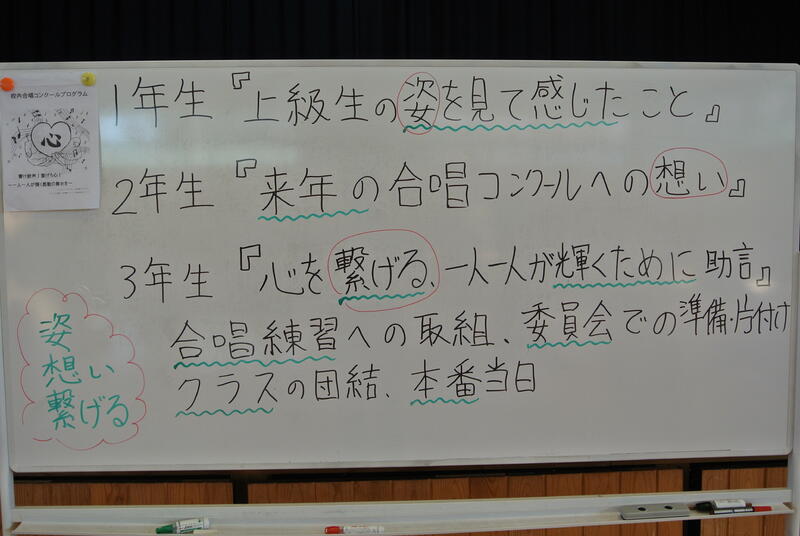 校内合唱コンクールプログラム
心
響け歌声！繋げろ心！
～一人一人が輝く感動の舞台を～
1年生『上級生の姿を見て感じたこと』
2年生『来年の合唱コンクールへの想い』
3年生『心を繋げる、一人一人が輝くために助言』
合唱練習への取組、委員会での準備・片付け
クラスの団結、本番当日
姿
想い
繋げる